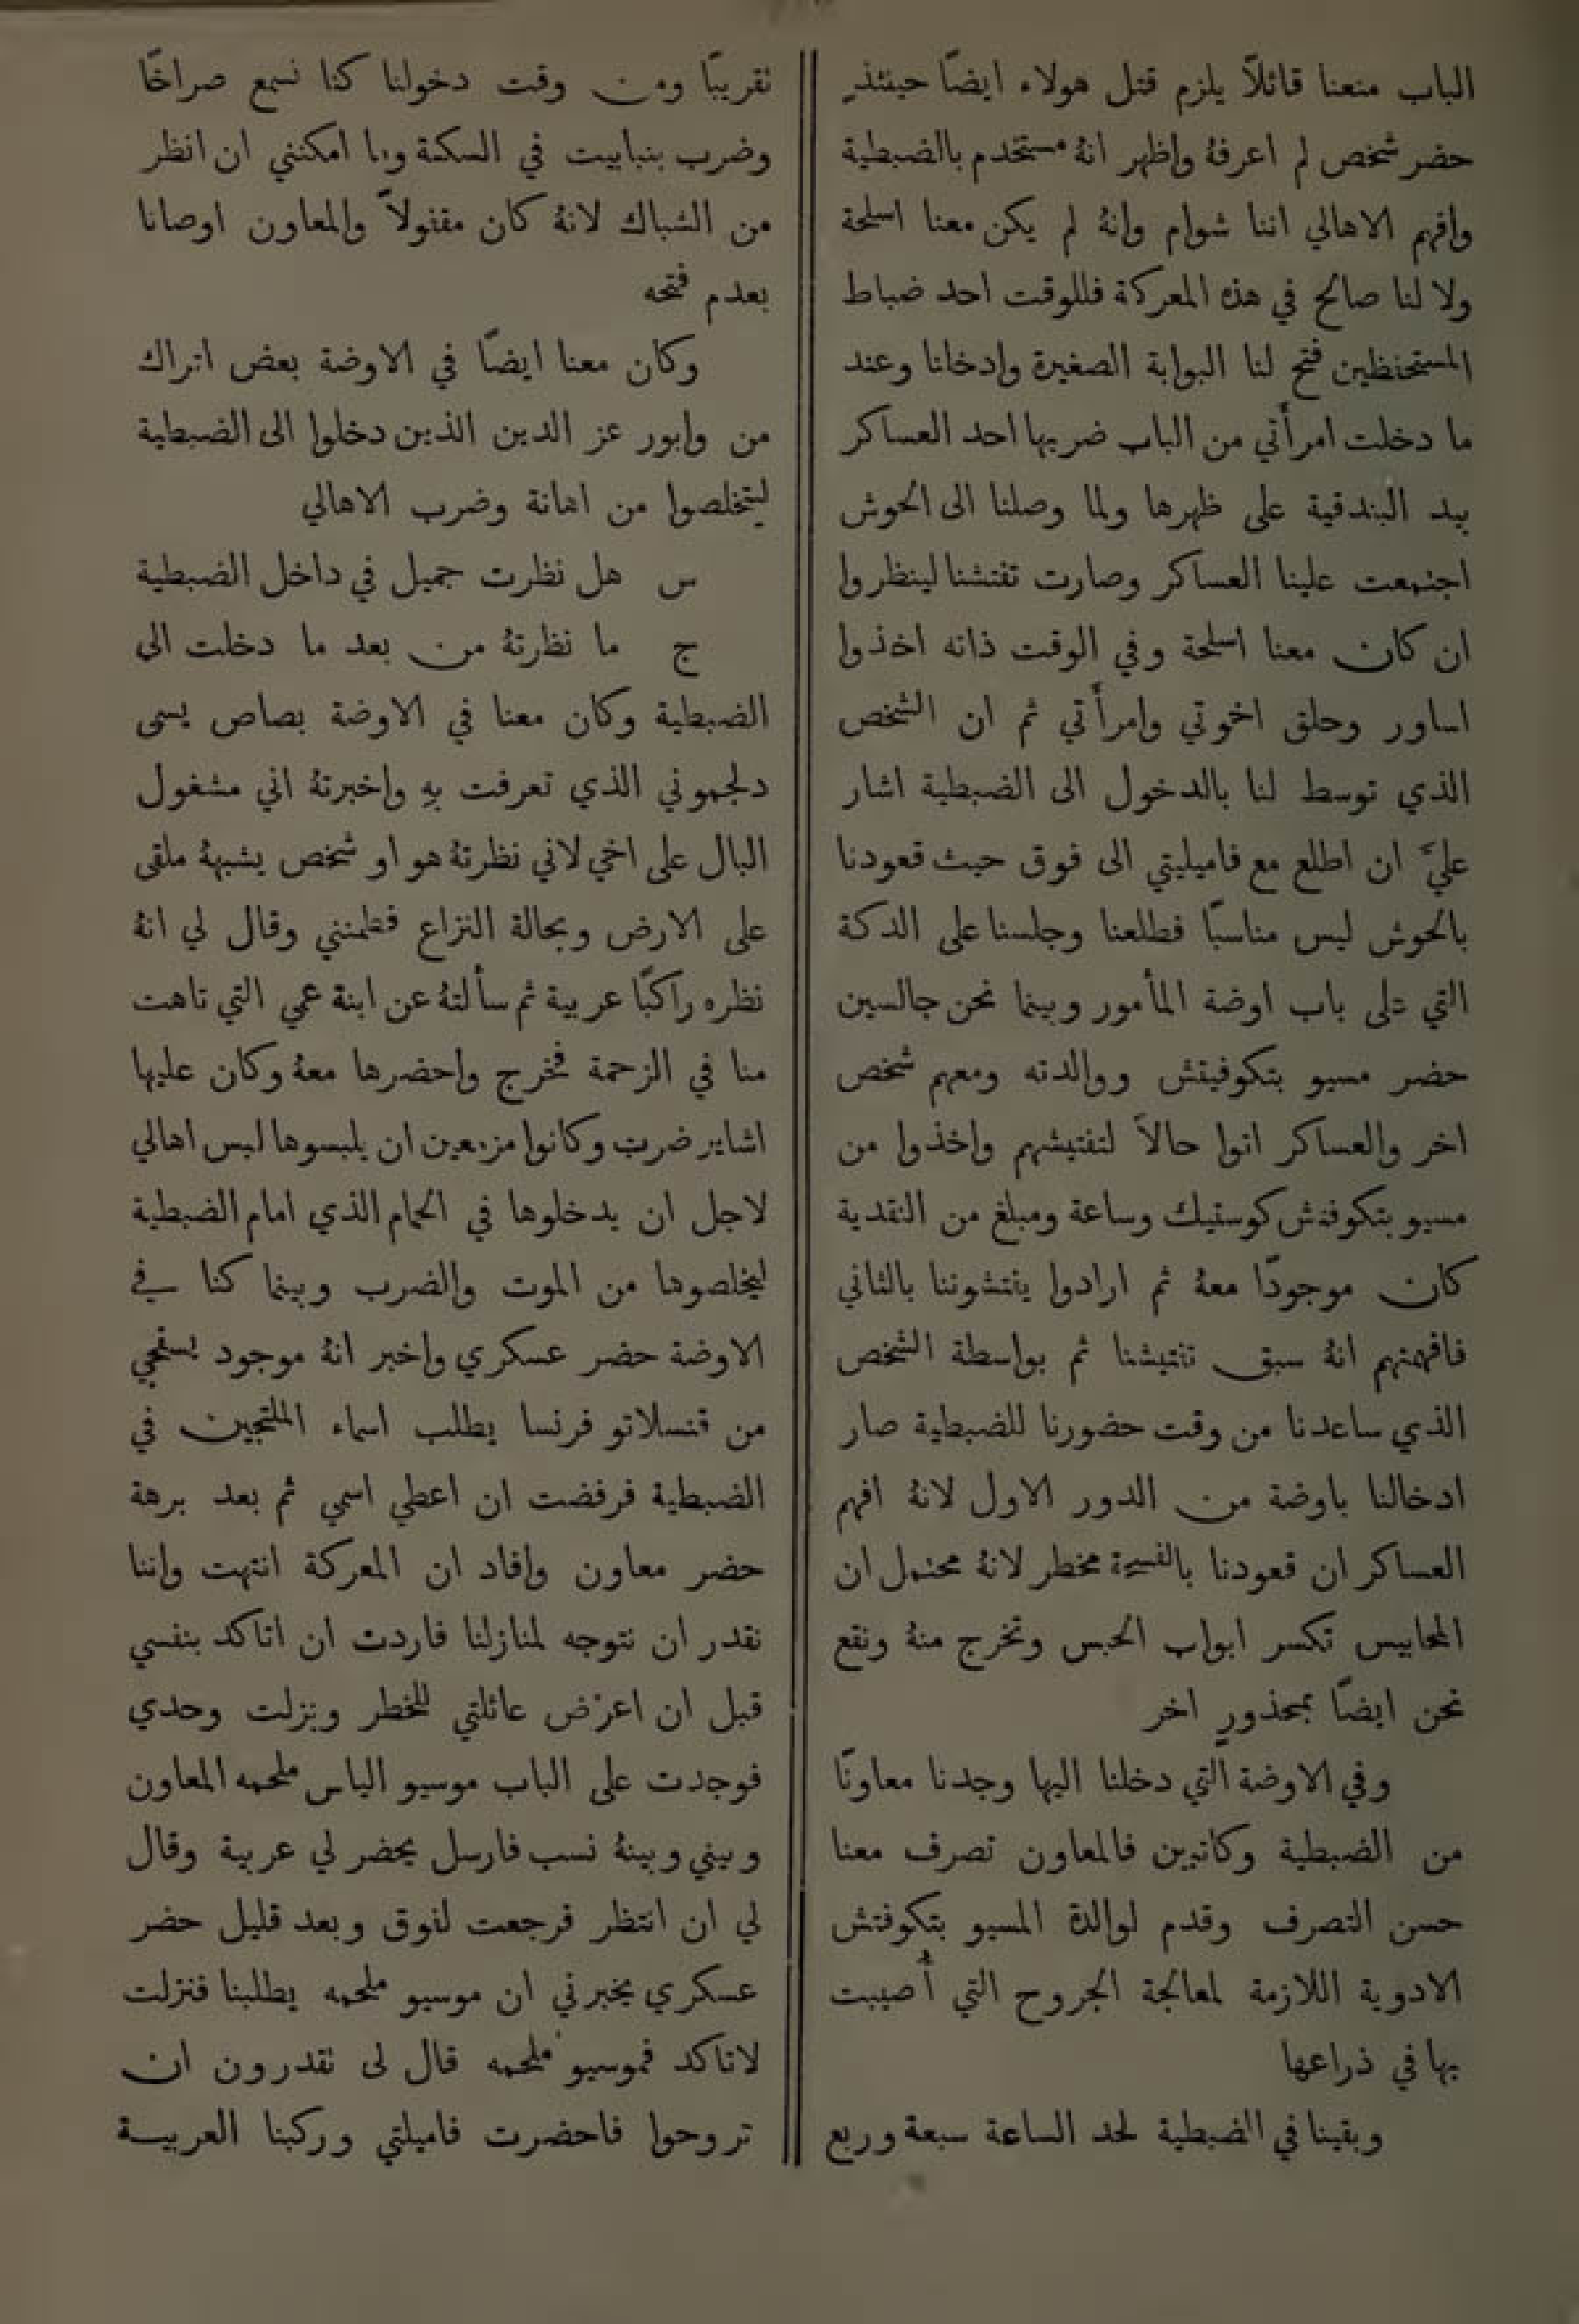 الباب منعنا قائلاً يلزم قتل هولاء ايضاً حينئذٍ
حضر شخص لم اعرفهُ واظهر انهُ مستخدم بالضبطية
وافهم الاهالي اننا شوام وانهُ لم يكن معنا اسلحة
ولا لنا صالح في هذه المعركة فللوقت احد ضباط
المستحفظين فتح لنا البوابة الصغيرة وادخلنا وعند
ما دخلت امرأتي من الباب ضربها احد العساكر
بيد البندقية على ظهرها ولما وصلنا الى الحوش
اجتمعت علينا العساكر وصارت تفتشنا لينظروا
ان كان معنا اسلحة وفي الوقت ذاته اخذوا
اساور وحلق اخوتي وامرأتي ثم ان الشخص
الذي توسط لنا بالدخول الى الضبطية اشار
عليَّ ان اطلع مع فاميليتي الى فوق حيث قعودنا
بالحوش ليس مناسباً فطلعنا وجلسنا على الدكة
التي على باب اوضة المأمور وبينما نحن جالسين
حضر مسيو بتكوفيتش ووالدته ومعهم شخص
اخر والعساكر اتوا حالاً لتفتيشهم واخذوا من
مسيو بتكوفتش كوستيك وساعة ومبلغ من النقدية
كان موجودًا معهُ ثم ارادوا يفتشوننا بالثاني
فافهمتهم انهُ سبق تفتيشنا ثم بواسطة الشخص
الذي ساعدنا من وقت حضورنا للضبطية صار
ادخالنا باوضة من الدور الاول لانهُ افهم
العساكر ان قعودنا بالفسحة مخطر لانهُ محتمل ان
المحابيس تكسر ابواب الحبس وتخرج منهُ ونقع
نحن ايضاً بمحذورٍ اخر
وفي الاوضة التي دخلنا اليها وجدنا معاونًا
من الضبطية وكاتبين فالمعاون تصرف معنا
حسن التصرف وقدم لوالدة المسيو بتكوفتش
الادوية اللازمة لمعالجة الجروح التي أُصيبت
بها في ذراعها
وبقينا في الضبطية لحد الساعة سبعة وربع
نقريبًا ومن وقت دخولنا كنا نسمع صراخًا
وضرب بنبابيت في السكة وما امكنني ان انظر
من الشباك لانهُ كان مقفولاً والمعاون اوصانا
بعدم فتحه
وكان معنا ايضاً في الاوضة بعض اتراك
من وابور عز الدين الذين دخلوا الى الضبطية
ليتخلصوا من اهانة وضرب الاهالي
س هل نظرت جميل في داخل الضبطية
ج ما نظرتهُ من بعد ما دخلت الى
الضبطية وكان معنا في الاوضة بصاص يسمى
دلجموني الذي تعرفت بهِ واخبرتهُ اني مشغول
البال على اخي لاني نظرتهُ هو او شخص يشبههُ ملقى
على الارض وبحالة النزاع فطمنني وقال لي انهُ
نظره راكبًا عربية ثم سألتهُ عن ابنة عمي التي تاهت
منا في الزحمة فخرج واحضرها معهُ وكان عليها
اشاير ضرب وكانوا مزمعين ان يلبسوها لبس اهالي
لاجل ان يدخلوها في الحمام الذي امام الضبطية
ليخلصوها من الموت والضرب وبينما كنا في
الاوضة حضر عسكري واخبر انهُ موجود يسقجي
من قنسلاتو فرنسا يطلب اسماء الملتجين في
الضبطية فرفضت ان اعطي اسمي ثم بعد برهة
حضر معاون وافاد ان المعركة انتهت واننا
نقدر ان نتوجه لمنازلنا فاردت ان اتاكد بنفسي
قبل ان اعرّض عائلتي للخطر ونزلت وحدي
فوجدت على الباب موسيو الياس ملحمه المعاون
وبيني وبينهُ نسب فارسل يحضر لي عربية وقال
لي ان انتظر فرجعت لفوق وبعد قليل حضر
عسكري يخبرني ان موسيو ملحمه يطلبنا فنزلت
لاتاكد فموسيو ملحمه قال لى نقدرون ان
تروحوا فاحضرت فاميلتي وركبنا العربيـة